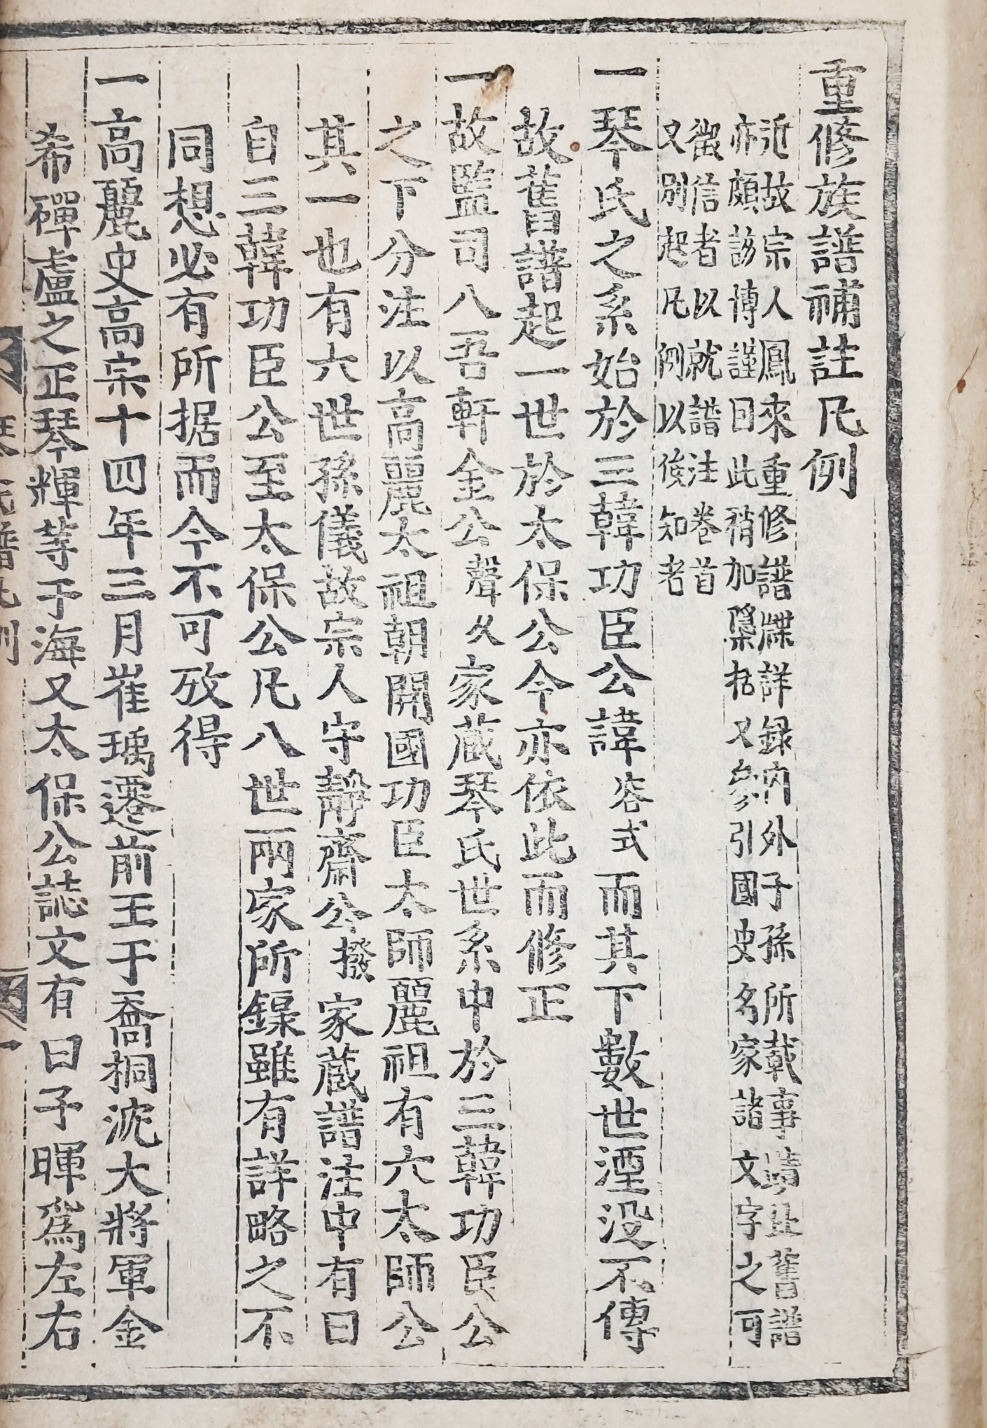 重修族譜補註凡例
近故宗人鳳來重修譜牒詳録內外子孫所載事蹟且舊譜
亦頗該博謹因此稍加檃括又參引國史名家諸文字之可
徵信者以就譜注卷首
又別起凡例以俟知者
一琴氏之系始於三韓功臣公諱容式而其下數世湮没不傳
故舊譜起一世於太保公今亦依此而修正
一故監司八吾軒金公聲久家蔵琴氏世系中於三韓功臣公
之下分注以高麗太祖朝開國功臣太師麗祖有六太師公
其一也有六世孫儀故宗人守靜齋公撥家蔵譜注中有曰
自三韓功臣公至太保公凡八世兩家所錄雖有詳略之不
同想必有所据而今不可攷得
一高麗史高宗十四年三月崔瑀遷前王于喬桐沈大將軍金
希磾盧之正琴輝等于海又太保公誌文有曰子暉爲左右
琴氏譜凡例
一